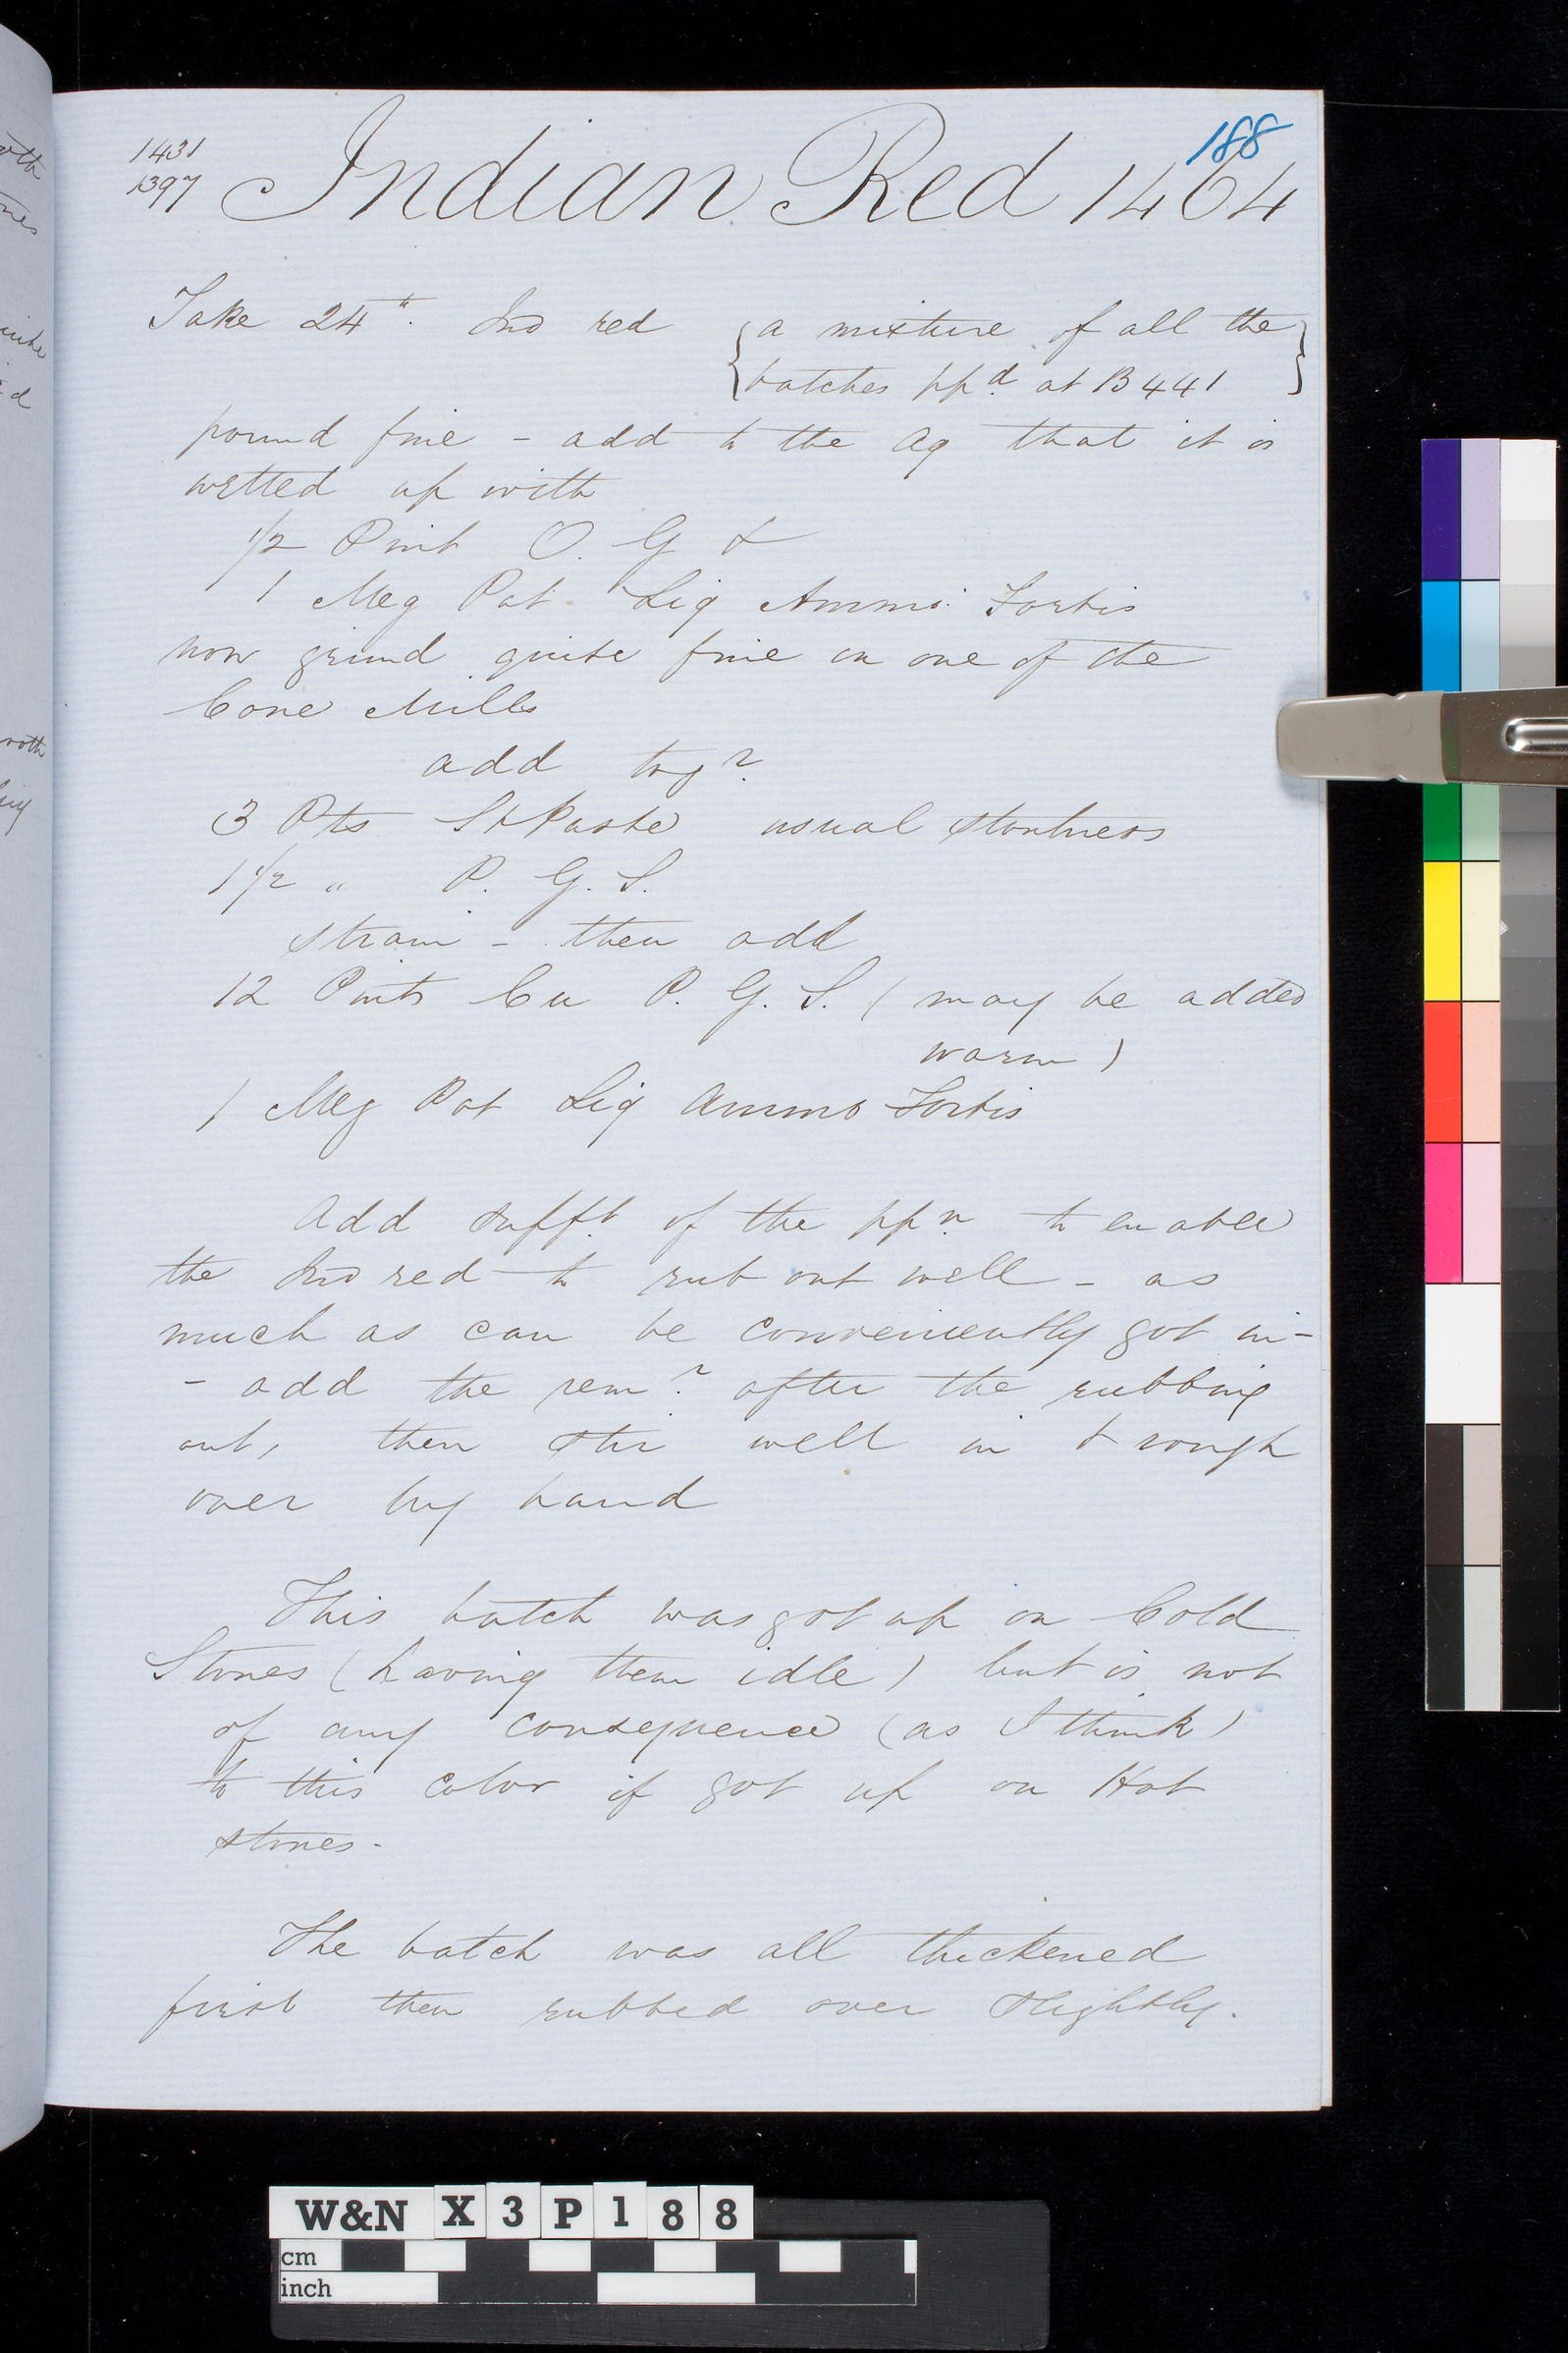 188
1431
1397 Indian Red 1464
Take 24 ". Ind red {a mixture of all the
batches ppd. at B 441}
pound fine - add to the Aq that it is
wetted up with
1/2 Pint O. G &
1 Meg Pot Liq Ammo: Fortis
now grind quite fine in one of the
Cone Mills
add togr
3 Pts St Paste usual stoutness
1 1/2 " P. G. S.
strain - then add
12 Pints Cu P. G. S. (may be added
warm)
1 Meg Pot Liq Ammo Fortis
Add sufft. of the ppn to enable
the Ind red to rub out well - as
much as can be conveniently got in -
- add the remr. after the rubbing
out, then stir well in & rough
over by hand
This batch was got up on Cold
Stones (having them idle) but is not
of any consequence (as I think)
to this color if got up on Hot
stones -
The batch was all thickened
first then rubbed over slightly.
W&N X3P188
cm
inch